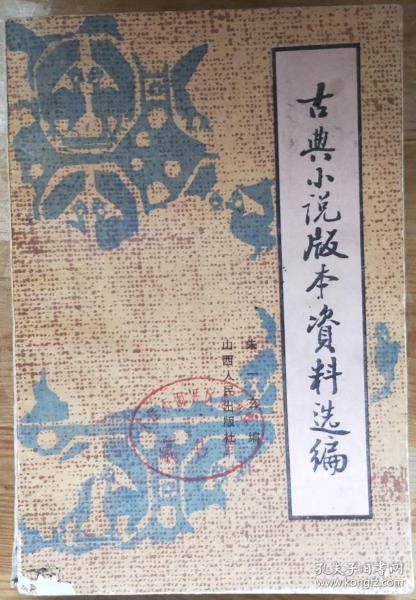 古典小说版本資料选编
朱一玄编
山西人民出版社
孔夫子旧书网
book.kongfz.com